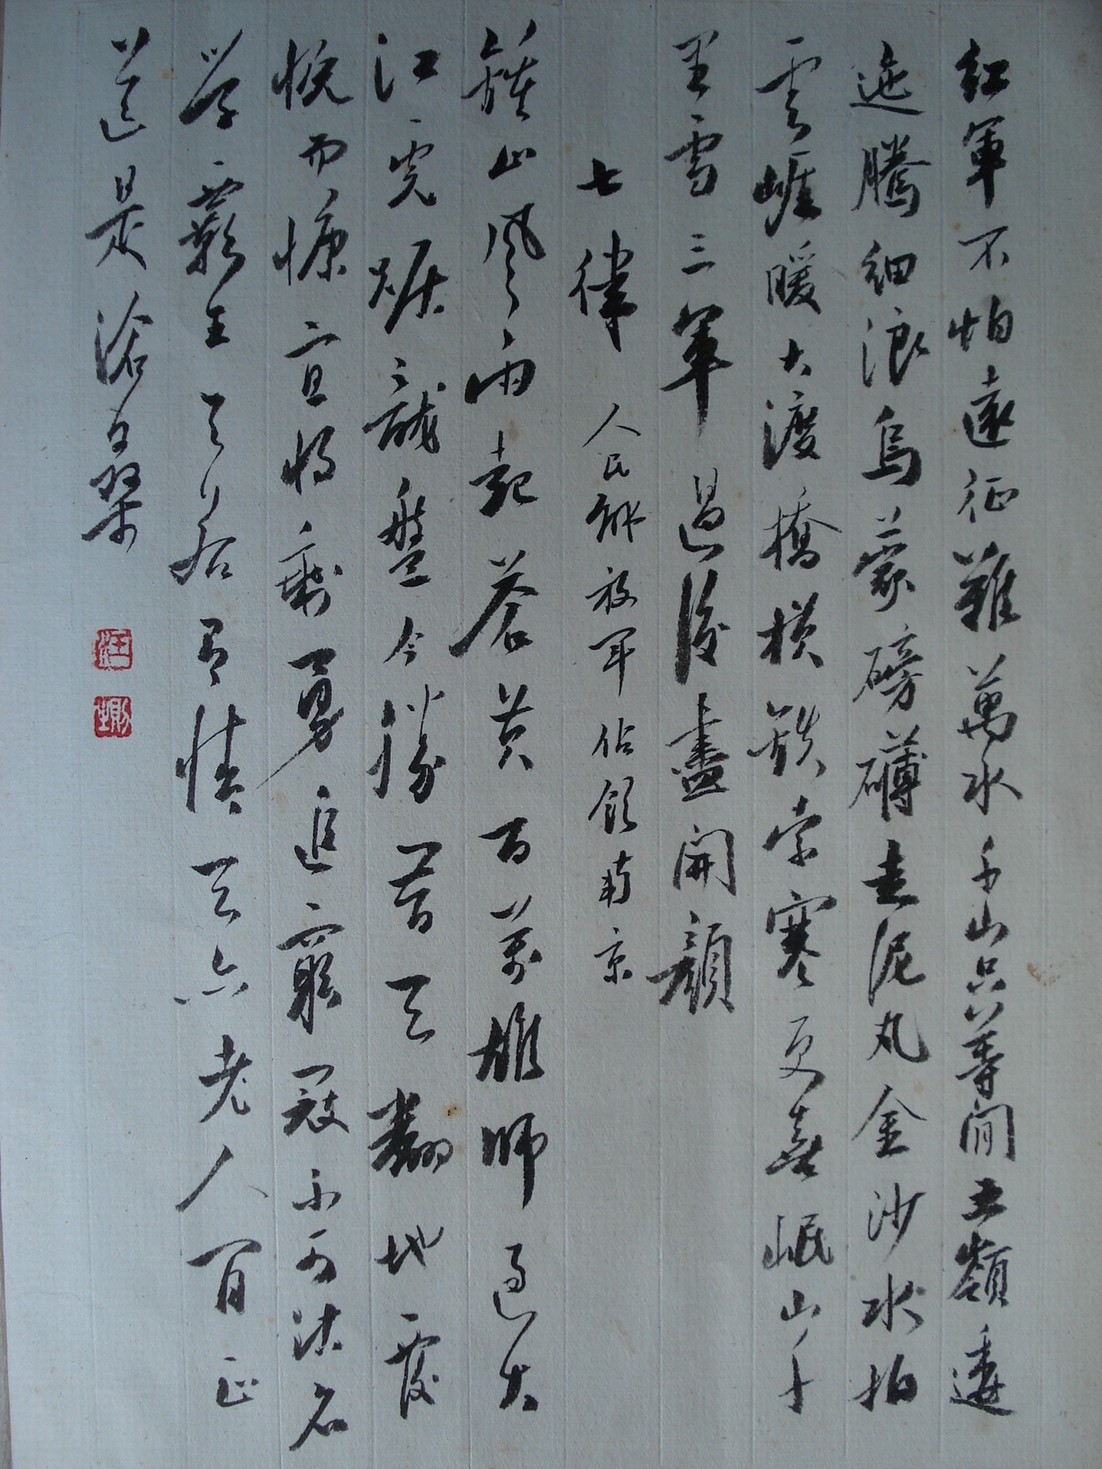 紅軍不怕遠征難萬水千山只等閒五嶺逶
迤騰細浪烏蒙磅礴走泥丸金沙水拍
雲崖暖大渡橋橫鉄索寒更喜岷山千
里雪三軍過後盡開顏
七律 人民解放軍佔領南京
鍾山風雨起蒼茫百萬雄師過大
江虎踞龍盤今勝昔天翻地覆
慨而慷宜將剩勇追窮寇不可沽名
學霸王天若有情天亦老人間正
道是滄桑